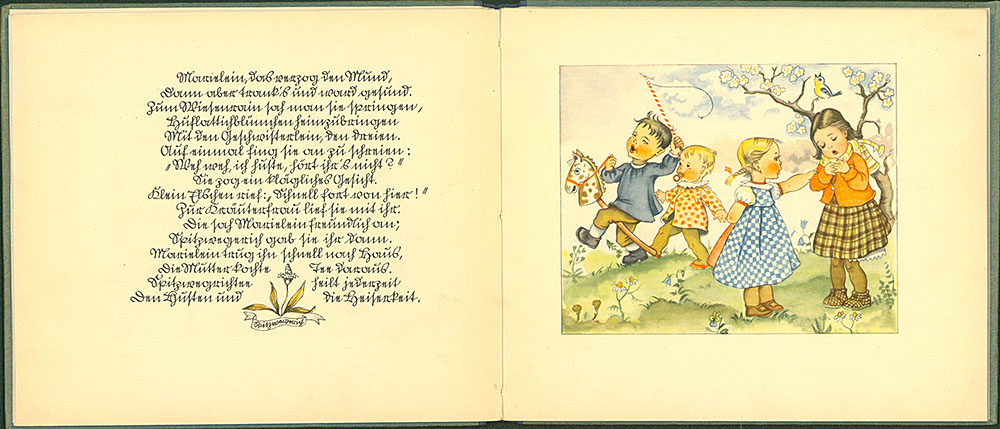 Marielein, das verzog den Mund,
Dann aber trank's und ward gesund.
Zum Wiesenrain sah man sie springen,
Huflattichblümchen heimzubringen
Mit den Geschwisterlein, den dreien.
Auf einmal fing sie an zu schreien:
„Weh weh, ich huste, hört ihr's nicht?“
Sie zog ein klägliches Gesicht.
Klein Elschen rief: „Schnell fort von hier!“
Zur Kräuterfrau lief sie mit ihr.
Die sah Marielein freundlich an;
Spitzwegerich gab sie ihr dann.
Marielein trug ihn schnell nach Haus,
Die Mutter kochte Tee daraus.
Spitzwegrichtee heilt jederzeit
Den Husten und die Heiserkeit.
Spitzwegerich